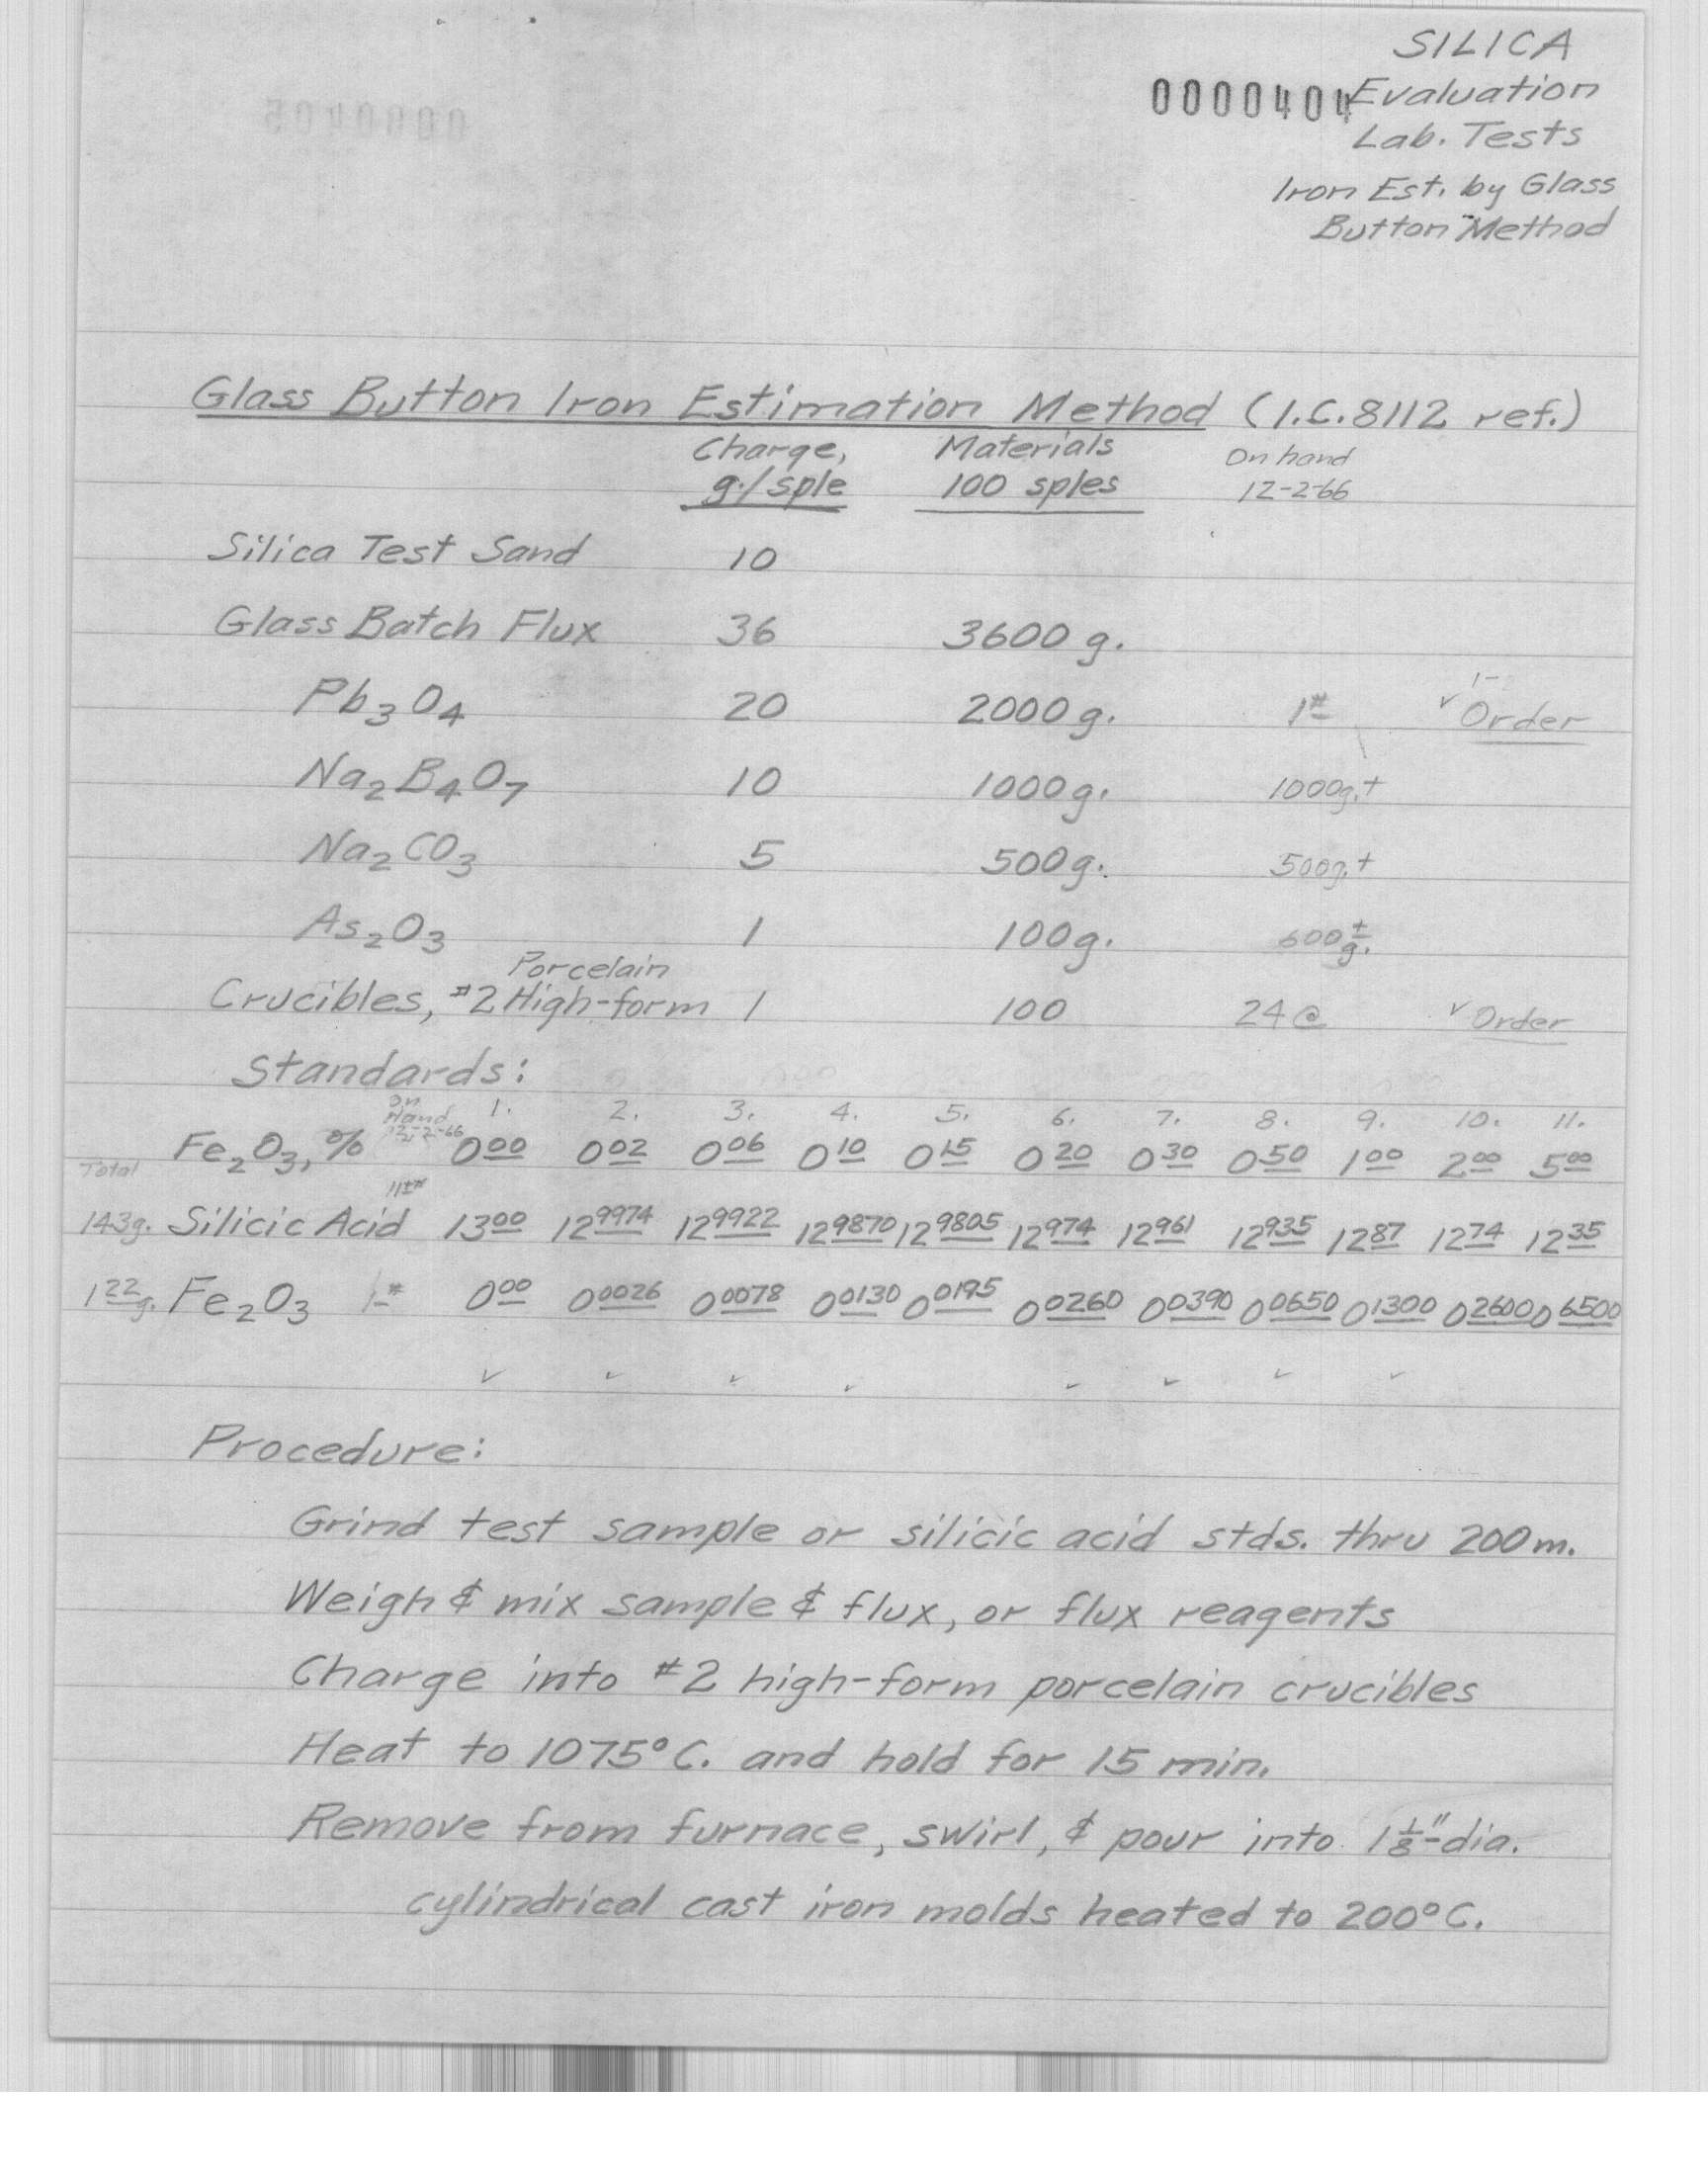 SILICA
0000404 Evaluation
Lab. Tests
Iron Est. by Glass
Button Method
Glass Button Iron Estimation Method (I.C. 8112 ref.)
Charge, Materials On hand
g./sple 100 sples 12-2-66
Silica Test Sand 10
Glass Batch Flux 36 3600 g.
Pb3O4 20 2000 g. 1# ✓ Order
Na2B4O7 10 1000 g. 1000g.+
Na2CO3 5 500 g. 500g.+
As2O3 1 100 g. 600 ± g.
Porcelain
Crucibles, #2 High-form 1 100 24 @ ✓ Order
Standards:
On Hand 12-2-66 1. 2. 3. 4. 5. 6. 7. 8. 9. 10. 11.
Fe2O3, % 0 00 0 02 0 06 0 10 0 15 0 20 0 30 0 50 1 00 2 00 5 00
Total
143g. Silicic Acid 13 00 12 9974 12 9922 12 9870 12 9805 12 974 12 961 12 935 12 87 12 74 12 35
1 22 g. Fe2O3 1# 0 00 0 0026 0 0078 0 0130 0 0195 0 0260 0 0390 0 0650 0 1300 0 2600 0 6500
✓ ✓ ✓ ✓ ✓ ✓ ✓ ✓
Procedure:
Grind test sample or silicic acid stds. thru 200 m.
Weigh & mix sample & flux, or flux reagents
Charge into #2 high-form porcelain crucibles
Heat to 1075°C. and hold for 15 min.
Remove from furnace, swirl, & pour into 1 1/8"-dia.
cylindrical cast iron molds heated to 200°C.